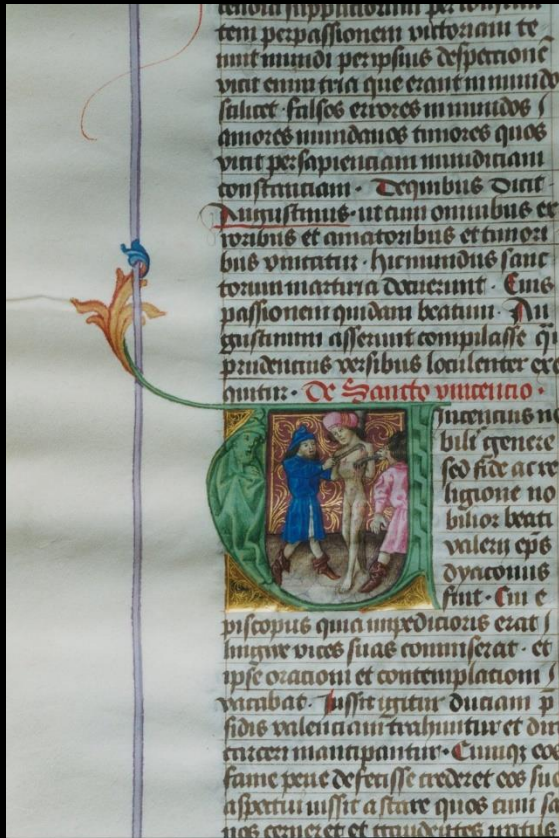 tem per passionem victoriam te
nuit mundi per ipsius despectione
vicit enim tria que erant in mundo
scilicet falsos errores inmundos
amores mundanos timores quos
vicit per sapienciam mundiciam
constanciam · De quibus dicit
Augustinus · ut cum omnibus er
roribus et amatoribus et timori
bus vincatur · hic mundus sanc
torum martiria docuerunt · Cuius
passionem quidam beatum · Au
gustinum asserunt compilasse qu
prudencius versibus loculenter
quitur · De Sancto vincencio ·
Vincencius
bilis genere
sed fide ac re
ligione no
bilior beati
valerii eps
dyaconus
fuit · Cui e
piscopus quia impeditioris erat
lingue vices suas commiserat · et
ipse orationi et contemplationi
vacabat · Jussit igitur daciani
fidis valenciam trahuntur et
carceri mancipantur · Cumqz eos
fame pene defecisse crederet eos
aspectui iussit astare quos cum
nos cerneret et gaudentes